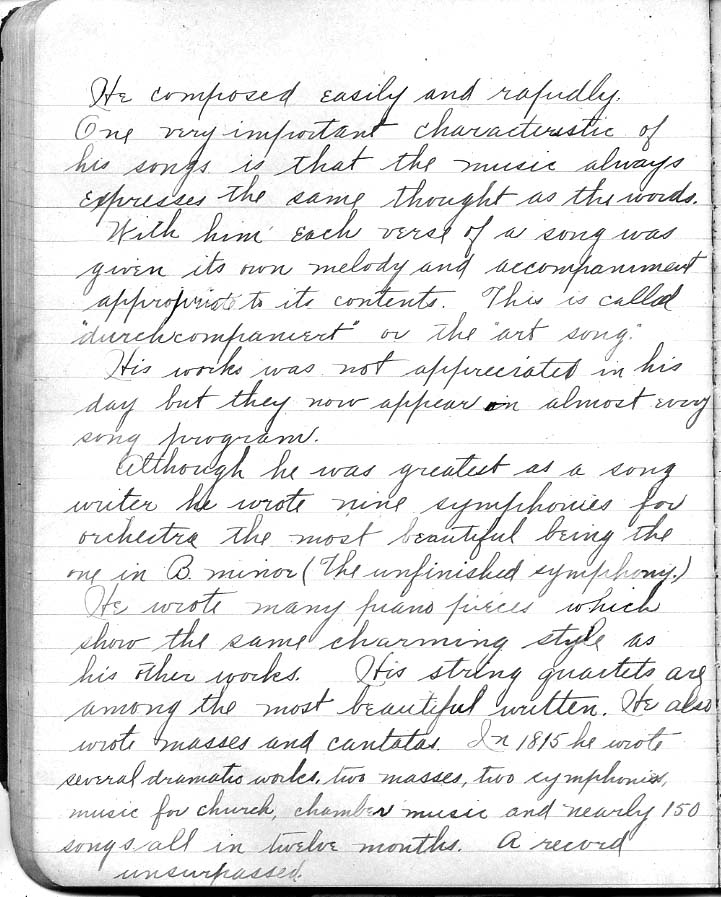 He composed easily and rapidly.
One very important characteristic of
his songs is that the music always
expresses the same thought as the words.
With him each verse of a song was
given its own melody and accompaniment
appropriate to its contents. This is called
"durchcompaniert" or the "art song."
His works was not appreciated in his
day but they now appear on almost every
song program.
Although he was greatest as a song
writer he wrote nine symphonies for
orchestra the most beautiful being the
one in B. minor (The unfinished symphony.)
He wrote many piano pieces which
show the same charming style as
his other works. His string quartets are
among the most beautiful written. He also
wrote masses and cantatas. In 1815 he wrote
several dramatic works, two masses, two symphonies,
music for church, chamber music and nearly 150
songs all in twelve months. A record
unsurpassed.